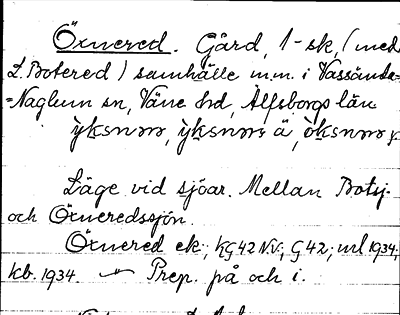 Öxnered. Gård, 1-sk, (med
L. Botered) samhälle m.m. i Vassända-
=Naglum sn, Väne hd, Älfsborgs län
Läge vid sjöar. Mellan Boty.
och Öxneredssjön.
Öxnered ek.; KG 42 NV.; G 42; url 1934;
kb. 1934. — " — Prep. på och i.